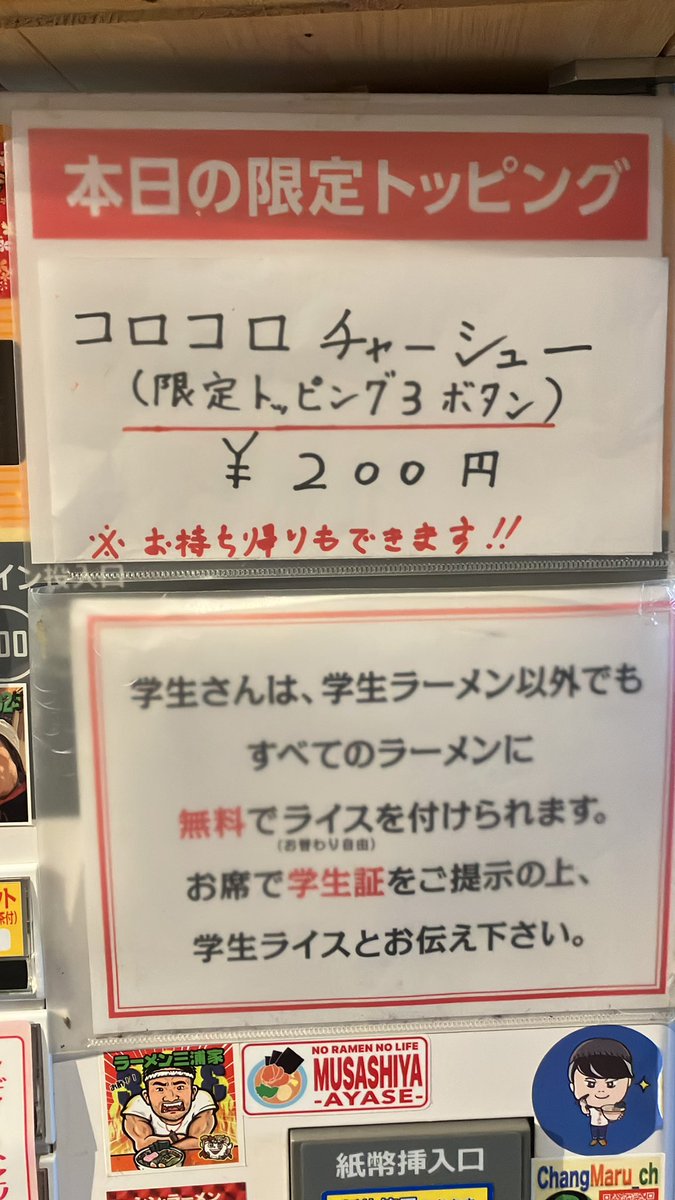 本日の限定トッピング
コロコロ チャーシュー
(限定トッピング3 ボタン)
¥200円
※お持ち帰りもできます!!
イン投入口
学生さんは、学生ラーメン以外でも
すべてのラーメンに
無料でライスを付けられます。
(お替わり自由)
お席で学生証をご提示の上、
学生ライスとお伝え下さい。
ラーメン三浦家
NO RAMEN NO LIFE
MUSASHIYA
-AYASE-
紙幣挿入口
ChangMaru_ch